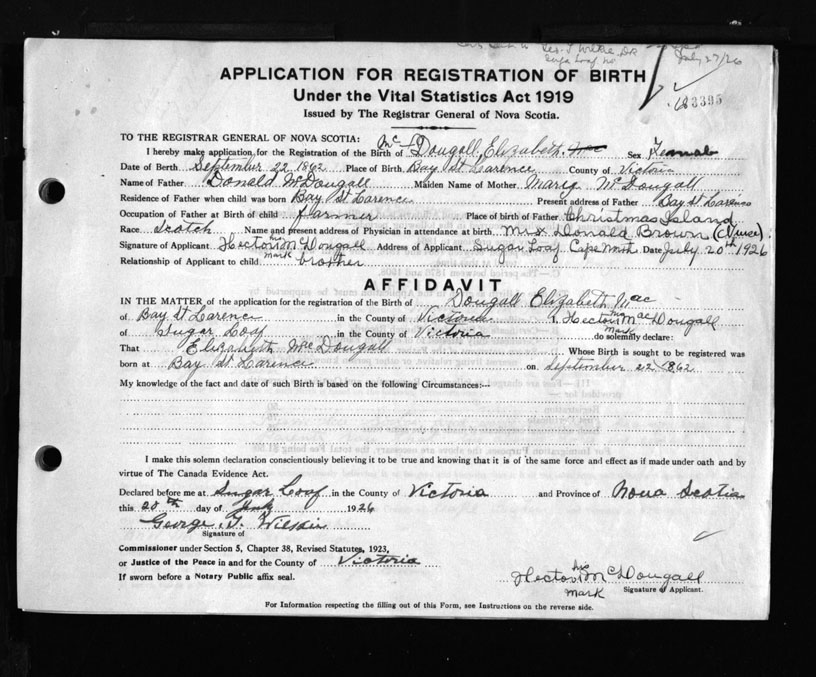 Geo. T Wilkie, DR
Sugar Loaf
July 27/26
APPLICATION FOR REGISTRATION OF BIRTH
Under the Vital Statistics Act 1919
Issued by The Registrar General of Nova Scotia.
TO THE REGISTRAR GENERAL OF NOVA SCOTIA:
I hereby make application for the Registration of the Birth of McDougall, Elizabeth. Mac Sex Female
Date of Birth September 22 1862 Place of Birth Bay St Larence County of Victoria
Name of Father Donald McDougall Maiden Name of Mother Mary McDougall
Residence of Father when child was born Bay St Larence Present address of Father Bay St Larence
Occupation of Father at Birth of child farmer Place of birth of Father Christmas Island
Race Scotch Name and present address of Physician in attendance at birth Mrs Donald Brown (Nurse)
Signature of Applicant Hector his McDougall Address of Applicant Sugar Loaf Cape North Date July 20th 1926
mark
Relationship of Applicant to child brother
AFFIDAVIT
IN THE MATTER of the application for the registration of the Birth of Dougall Elizabeth Mac
of Bay St Larence in the County of Victoria I, Hector his MacDougall
mark
of Sugar Loaf in the County of Victoria do solemnly declare:
That Elizabeth McDougall Whose Birth is sought to be registered was
born at Bay St Larence on September 22 1862
My knowledge of the fact and date of such Birth is based on the following Circumstances:—
I make this solemn declaration conscientiously believing it to be true and knowing that it is of the same force and effect as if made under oath and by
virtue of The Canada Evidence Act.
Declared before me at Sugar Loaf in the County of Victoria and Province of Nova Scotia
this 20th day of July 1926
George. T. Wilkie
Signature of
Commissioner under Section 5, Chapter 38, Revised Statutes, 1923,
or Justice of the Peace in and for the County of Victoria
If sworn before a Notary Public affix seal.
Hector his McDougall
mark Signature of Applicant.
For Information respecting the filling out of this Form, see Instructions on the reverse side.